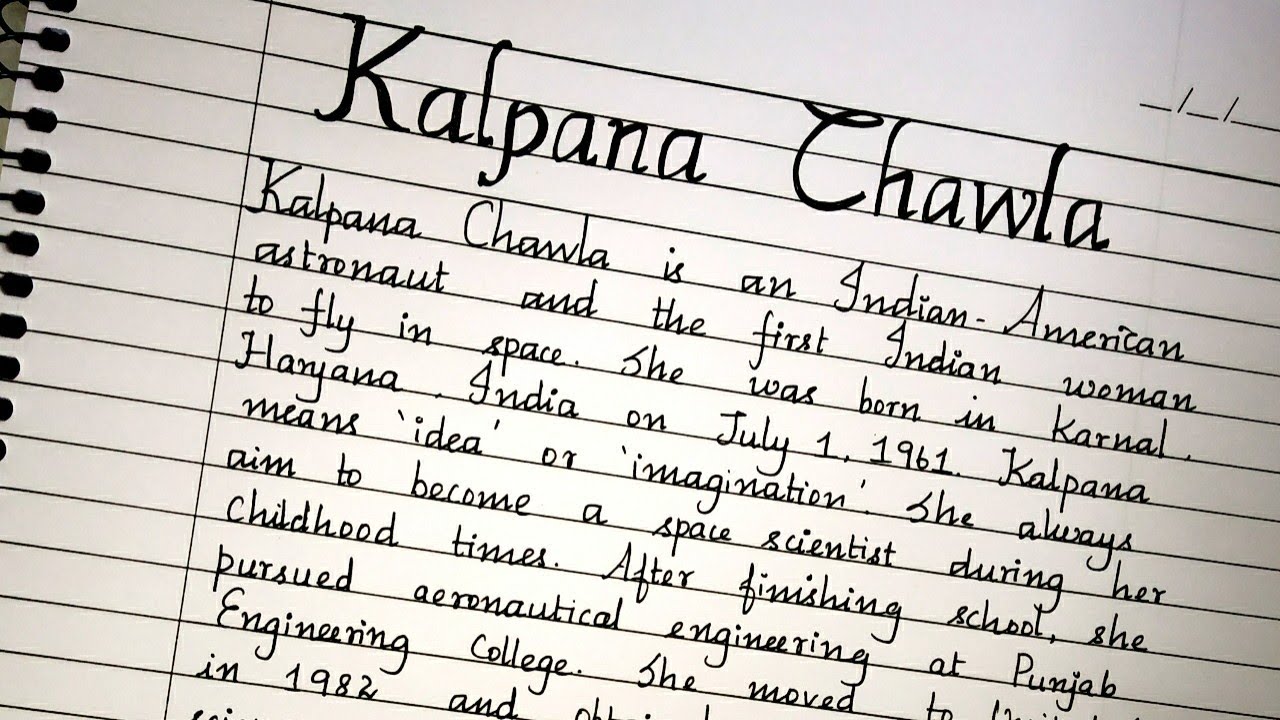 Kalpana Chawla
Kalpana Chawla is an Indian-American
astronaut and the first Indian woman
to fly in space. She was born in Karnal,
Haryana, India on July 1, 1961. Kalpana
means 'idea' or 'imagination'. She always
aim to become a space scientist during her
childhood times. After finishing school, she
pursued aeronautical engineering at Punjab
Engineering College. She moved to
in 1982 and